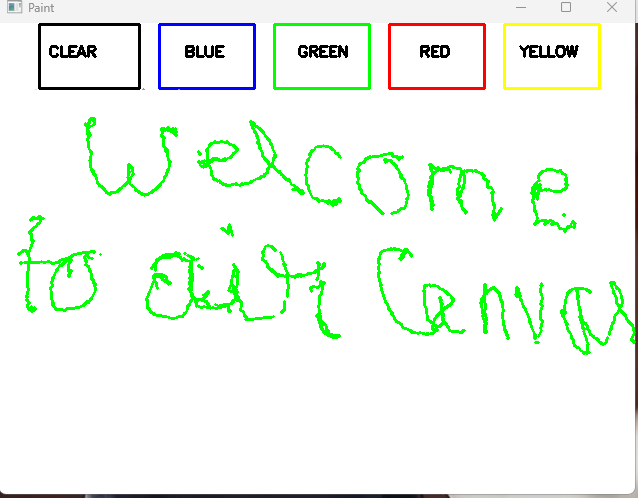 Paint
CLEAR BLUE GREEN RED YELLOW
Welcome
to air Canvas